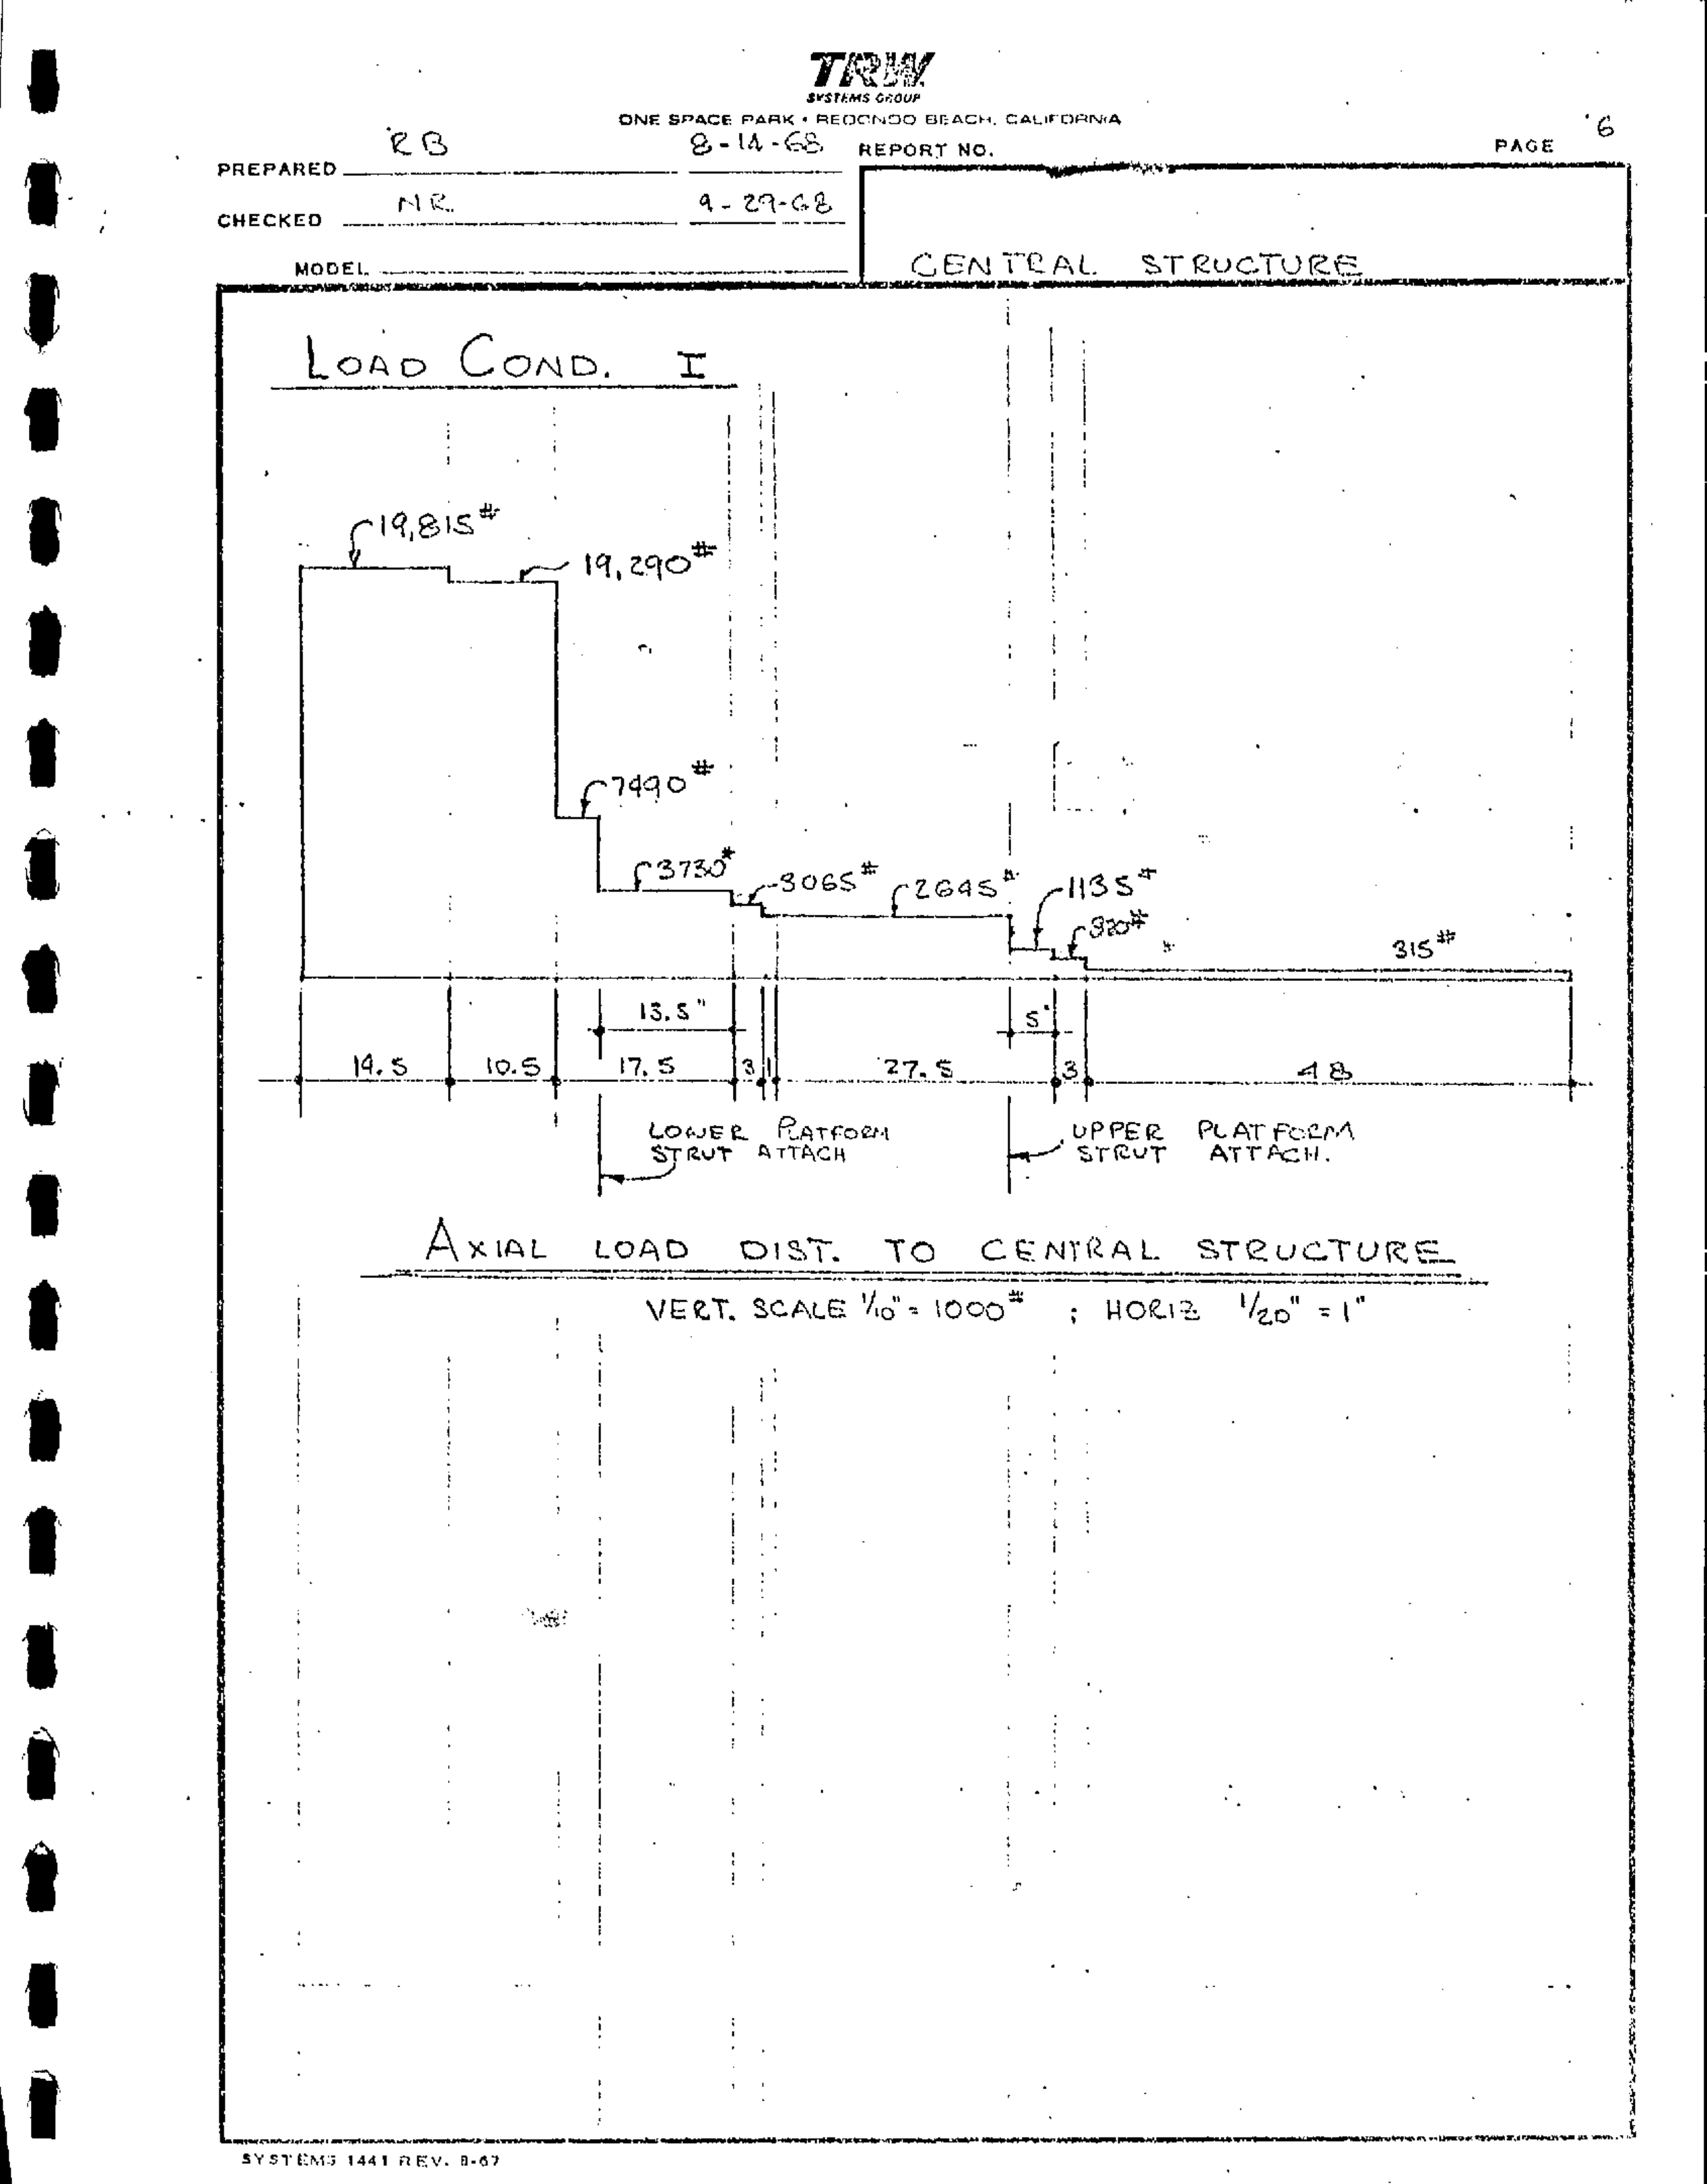 TRW
SYSTEMS GROUP
ONE SPACE PARK • REDONDO BEACH, CALIFORNIA
PREPARED RB 8-14-68 REPORT NO. PAGE 6
CHECKED NR 9-29-68
MODEL CENTRAL STRUCTURE
LOAD COND. I
19,815#
19,290#
7490#
3730#
3065#
2645#
1135#
820#
315#
13.5"
5"
14.5 10.5 17.5 3 1 27.5 3 48
LOWER PLATFORM
STRUT ATTACH
UPPER PLATFORM
STRUT ATTACH.
AXIAL LOAD DIST. TO CENTRAL STRUCTURE
VERT. SCALE 1/10" = 1000# ; HORIZ 1/20" = 1"
SYSTEMS 1441 REV. 8-67